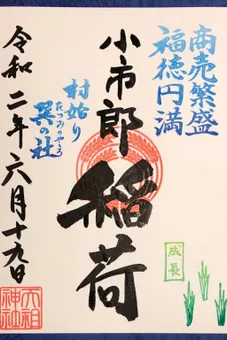 商売繁盛
福徳円満
小市郎
稲荷
村始り
巽の社
たつみのやしろ
令和二年六月十九日
成長
大相
神社